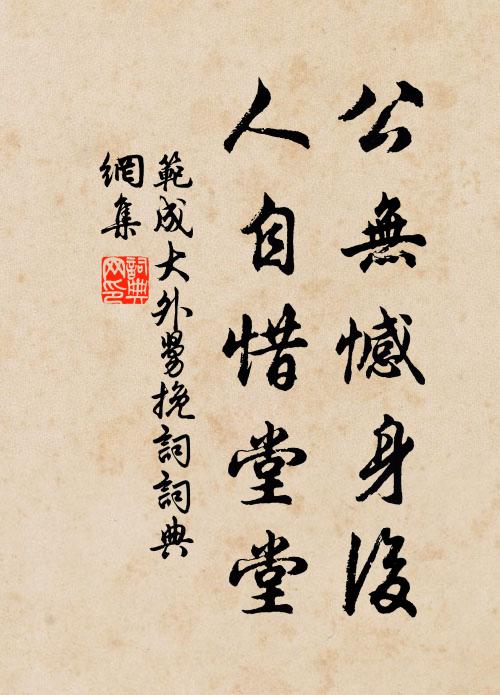 公無憾身後
人自惜堂堂
範成大外舅挽詞詞典
網集
詞典
網印